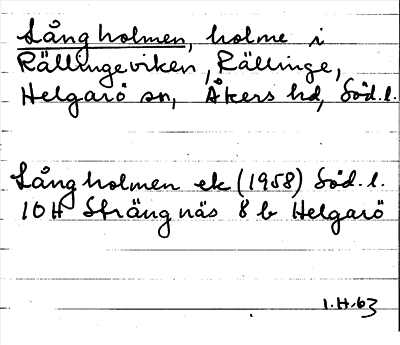 Långholmen, holme i
Rällingeviken, Rällinge,
Helgarö sn, Åkers hd, Söd.l.
Långholmen ek (1958) Söd.l.
10H Strängnäs 8b Helgarö
1.H.63